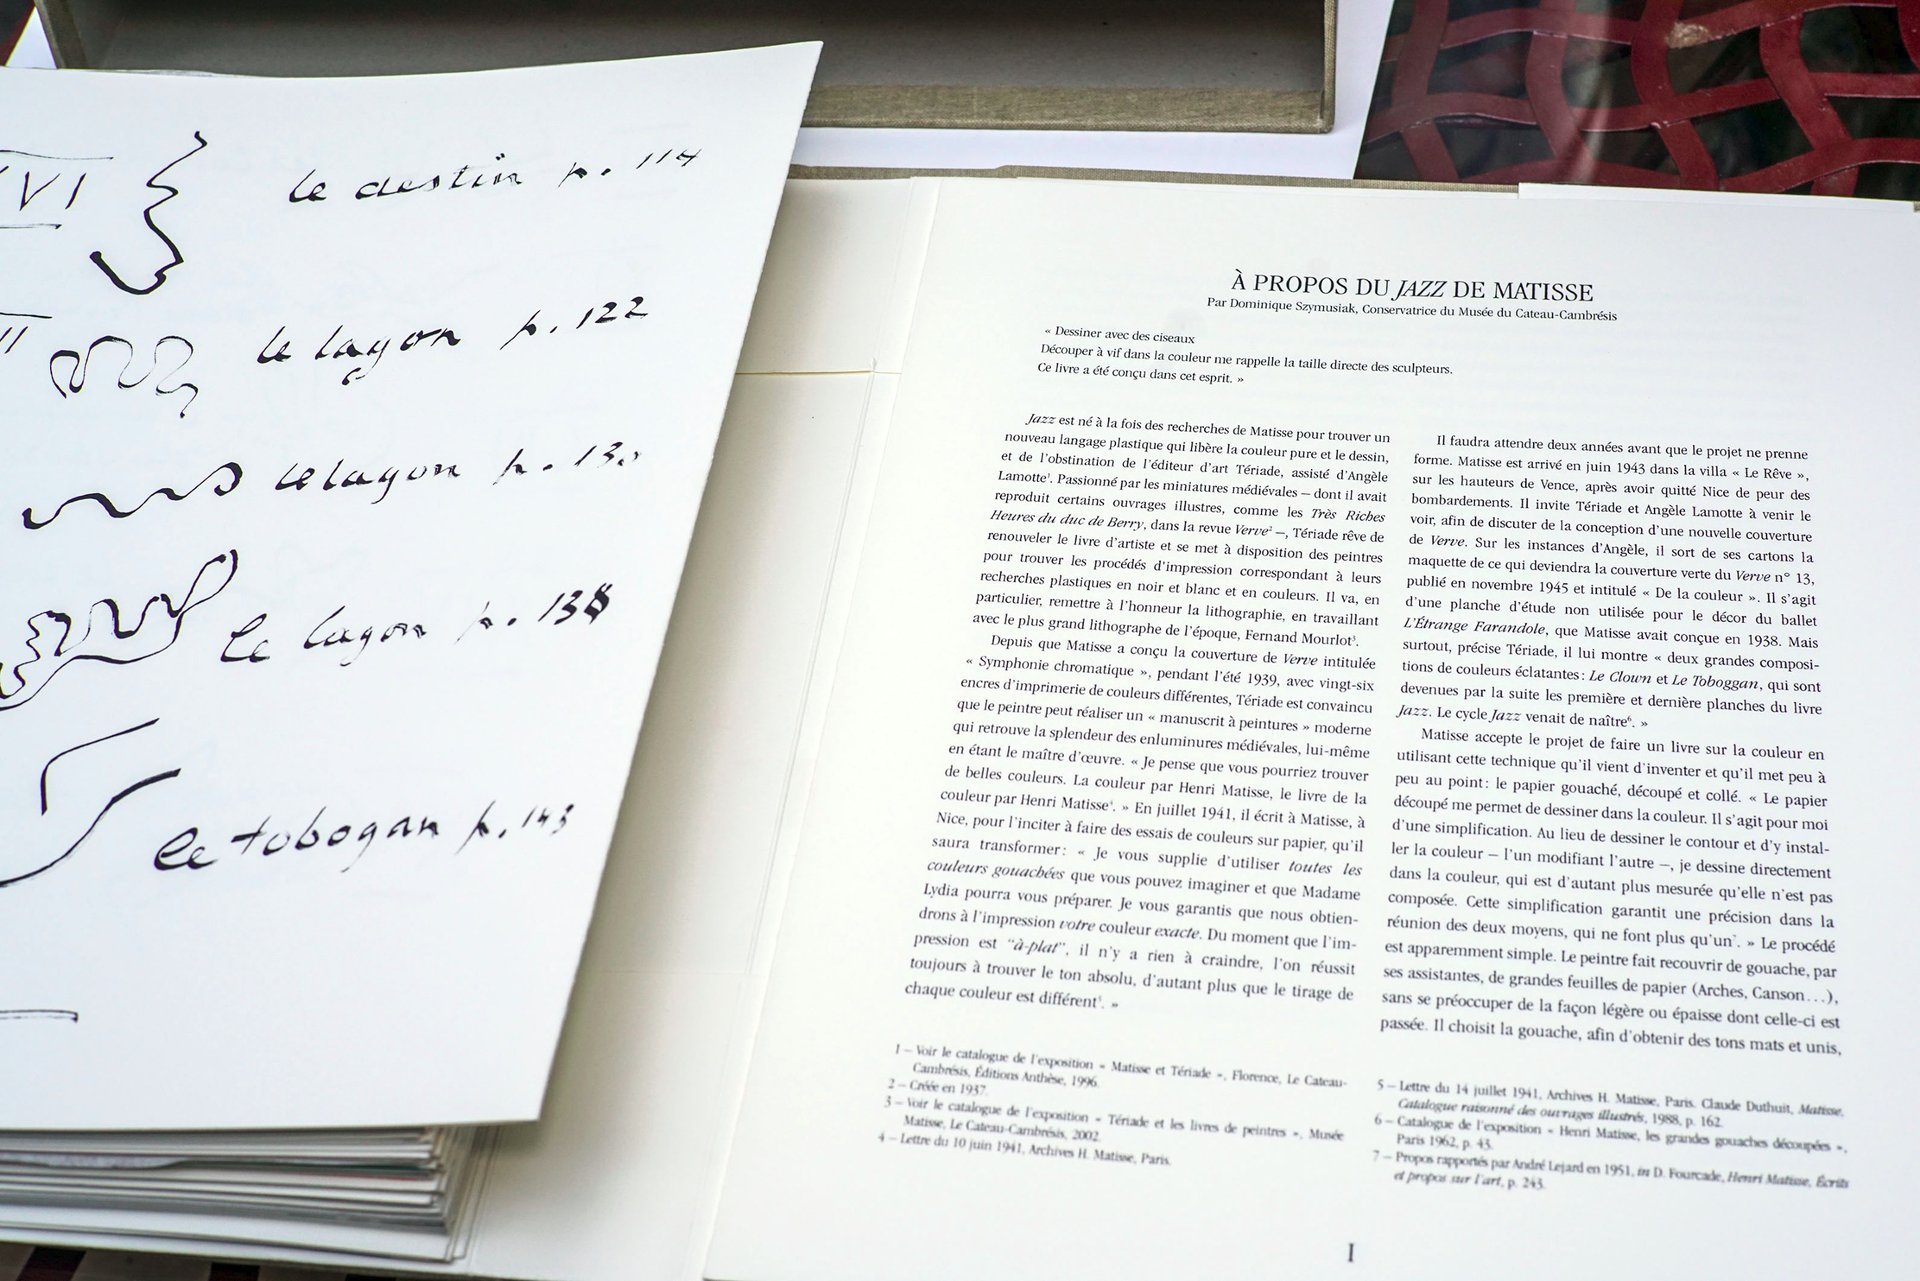 VI le destin p. 114
II le lagon p. 122
le lagon p. 130
le lagon p. 138
le tobogan p. 143
À PROPOS DU JAZZ DE MATISSE
Par Dominique Szymusiak, Conservatrice du Musée du Cateau-Cambrésis
« Dessiner avec des ciseaux
Découper à vif dans la couleur me rappelle la taille directe des sculpteurs.
Ce livre a été conçu dans cet esprit. »
Jazz est né à la fois des recherches de Matisse pour trouver un
nouveau langage plastique qui libère la couleur pure et le dessin,
et de l'obstination de l'éditeur d'art Tériade, assisté d'Angèle
Lamotte¹. Passionné par les miniatures médiévales – dont il avait
reproduit certains ouvrages illustres, comme les Très Riches
Heures du duc de Berry, dans la revue Verve² –, Tériade rêve de
renouveler le livre d'artiste et se met à disposition des peintres
pour trouver les procédés d'impression correspondant à leurs
recherches plastiques en noir et blanc et en couleurs. Il va, en
particulier, remettre à l'honneur la lithographie, en travaillant
avec le plus grand lithographe de l'époque, Fernand Mourlot³.
Depuis que Matisse a conçu la couverture de Verve intitulée
« Symphonie chromatique », pendant l'été 1939, avec vingt-six
encres d'imprimerie de couleurs différentes, Tériade est convaincu
que le peintre peut réaliser un « manuscrit à peintures » moderne
qui retrouve la splendeur des enluminures médiévales, lui-même
en étant le maître d'œuvre. « Je pense que vous pourriez trouver
de belles couleurs. La couleur par Henri Matisse, le livre de la
couleur par Henri Matisse⁴. » En juillet 1941, il écrit à Matisse, à
Nice, pour l'inciter à faire des essais de couleurs sur papier, qu'il
saura transformer : « Je vous supplie d'utiliser toutes les
couleurs gouachées que vous pouvez imaginer et que Madame
Lydia pourra vous préparer. Je vous garantis que nous obtien-
drons à l'impression votre couleur exacte. Du moment que l'im-
pression est “à-plat”, il n'y a rien à craindre, l'on réussit
toujours à trouver le ton absolu, d'autant plus que le tirage de
chaque couleur est différent⁵. »
1 – Voir le catalogue de l'exposition « Matisse et Tériade », Florence, Le Cateau-
Cambrésis, Éditions Anthèse, 1996.
2 – Créée en 1937.
3 – Voir le catalogue de l'exposition « Tériade et les livres de peintres », Musée
Matisse, Le Cateau-Cambrésis, 2002.
4 – Lettre du 10 juin 1941, Archives H. Matisse, Paris.
Il faudra attendre deux années avant que le projet ne prenne
forme. Matisse est arrivé en juin 1943 dans la villa « Le Rêve »,
sur les hauteurs de Vence, après avoir quitté Nice de peur des
bombardements. Il invite Tériade et Angèle Lamotte à venir le
voir, afin de discuter de la conception d'une nouvelle couverture
de Verve. Sur les instances d'Angèle, il sort de ses cartons la
maquette de ce qui deviendra la couverture verte du Verve n° 13,
publié en novembre 1945 et intitulé « De la couleur ». Il s'agit
d'une planche d'étude non utilisée pour le décor du ballet
L'Étrange Farandole, que Matisse avait conçue en 1938. Mais
surtout, précise Tériade, il lui montre « deux grandes composi-
tions de couleurs éclatantes : Le Clown et Le Toboggan, qui sont
devenues par la suite les première et dernière planches du livre
Jazz. Le cycle Jazz venait de naître⁶. »
Matisse accepte le projet de faire un livre sur la couleur en
utilisant cette technique qu'il vient d'inventer et qu'il met peu à
peu au point : le papier gouaché, découpé et collé. « Le papier
découpé me permet de dessiner dans la couleur. Il s'agit pour moi
d'une simplification. Au lieu de dessiner le contour et d'y instal-
ler la couleur – l'un modifiant l'autre –, je dessine directement
dans la couleur, qui est d'autant plus mesurée qu'elle n'est pas
composée. Cette simplification garantit une précision dans la
réunion des deux moyens, qui ne font plus qu'un⁷. » Le procédé
est apparemment simple. Le peintre fait recouvrir de gouache, par
ses assistantes, de grandes feuilles de papier (Arches, Canson…),
sans se préoccuper de la façon légère ou épaisse dont celle-ci est
passée. Il choisit la gouache, afin d'obtenir des tons mats et unis,
5 – Lettre du 14 juillet 1941, Archives H. Matisse, Paris. Claude Duthuit, Matisse.
Catalogue raisonné des ouvrages illustrés, 1988, p. 162.
6 – Catalogue de l'exposition « Henri Matisse, les grandes gouaches découpées »,
Paris 1962, p. 43.
7 – Propos rapportés par André Lejard en 1951, in D. Fourcade, Henri Matisse, Écrits
et propos sur l'art, p. 243.
I